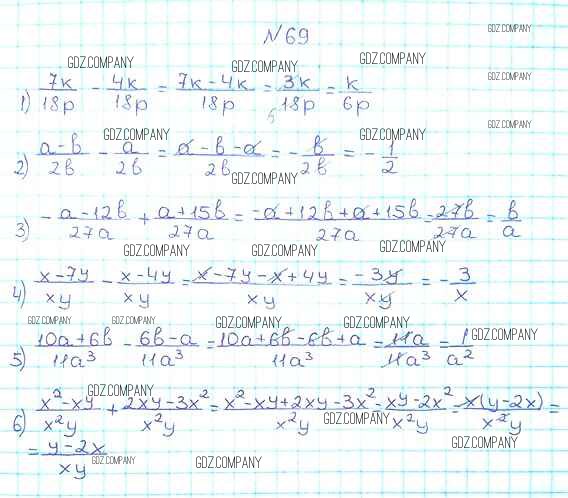 №69
GDZ.COMPANY
GDZ.COMPANY GDZ.COMPANY GDZ.COMPANY
1) 7k/18p - 4k/18p = 7k - 4k/18p = 3k/18p = k/6p
GDZ.COMPANY
6
GDZ.COMPANY GDZ.COMPANY
2) a - b/2b - a/2b = a - b - a/2b = - b/2b = - 1/2
GDZ.COMPANY
3) - a - 12b/27a + a + 15b/27a = -a + 12b + a + 15b/27a = 27b/27a = b/a
GDZ.COMPANY GDZ.COMPANY GDZ.COMPANY
4) x - 7y/xy - x - 4y/xy = x - 7y - x + 4y/xy = -3y/xy = - 3/x
GDZ.COMPANY GDZ.COMPANY GDZ.COMPANY GDZ.COMPANY
5) 10a + 6b/11a³ - 6b - a/11a³ = 10a + 6b - 6b + a/11a³ = 11a/11a³ = 1/a²
GDZ.COMPANY
GDZ.COMPANY
6) x² - xy/x²y + 2xy - 3x²/x²y = x² - xy + 2xy - 3x²/x²y = xy - 2x²/x²y = x(y - 2x)/x²y =
GDZ.COMPANY
GDZ.COMPANY
= y - 2x/xy
GDZ.COMPANY GDZ.COMPANY